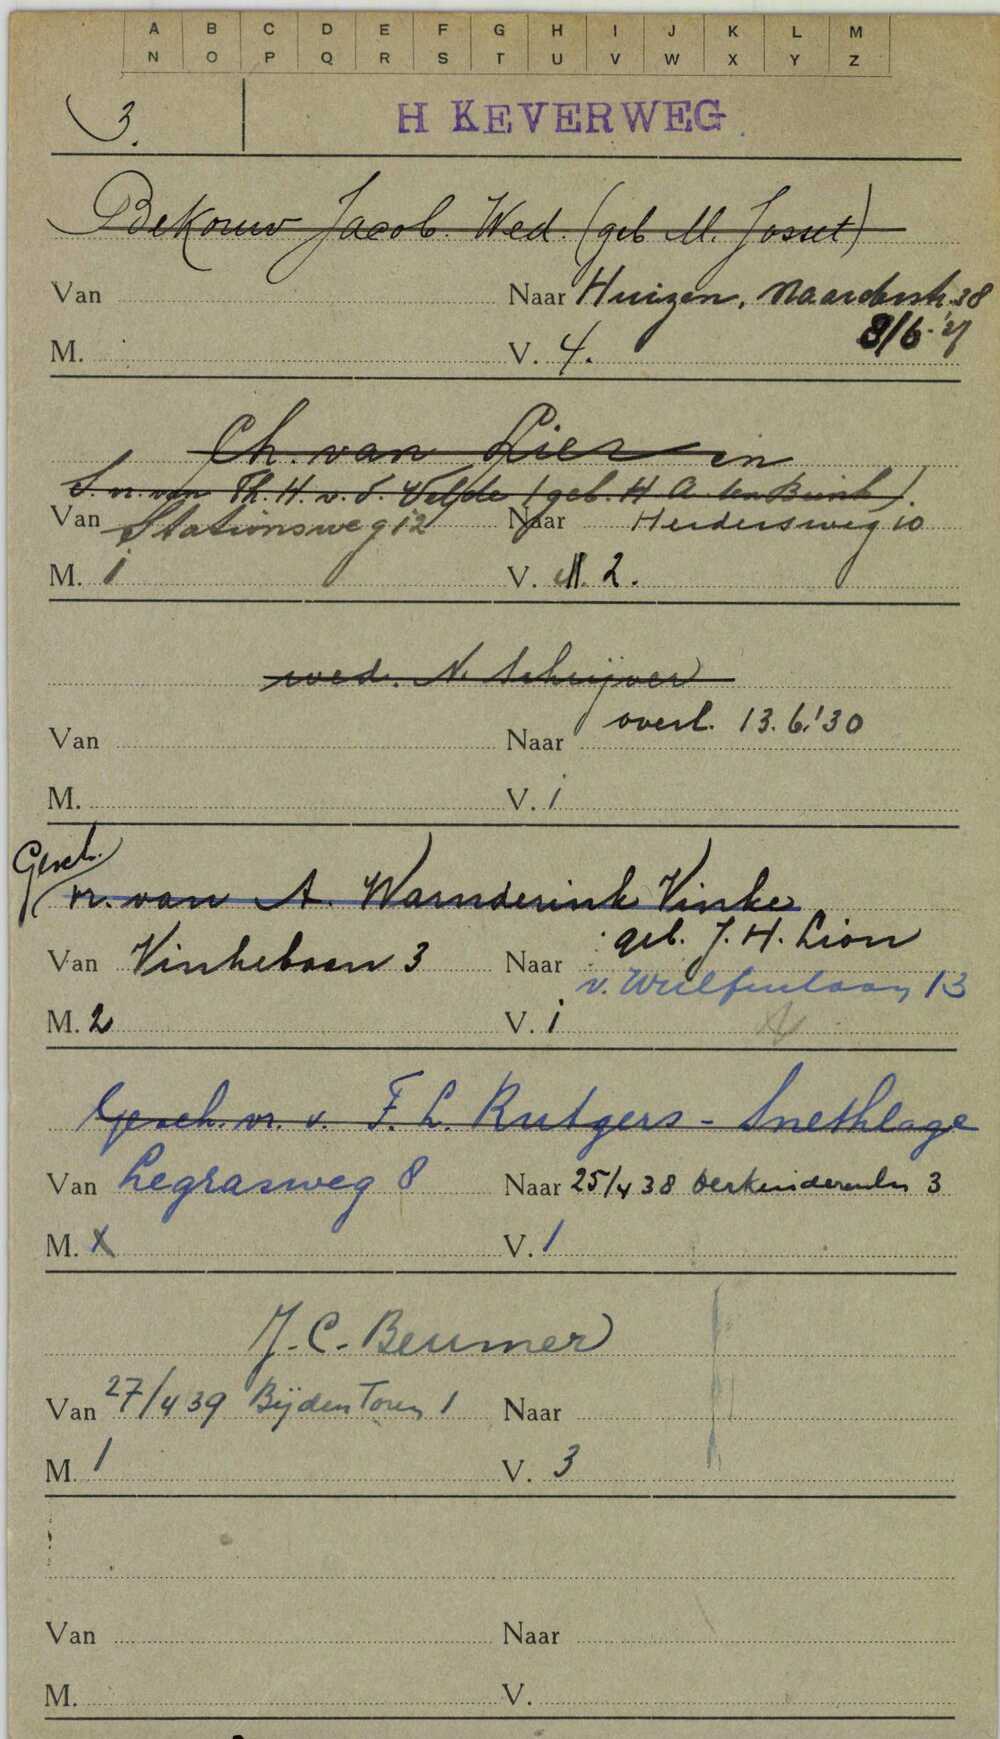 A B C D E F G H I J K L M
N O P Q R S T U V W X Y Z
3. H KEVERWEG
Bekouw Jacob. Wed. (geb M. Josset)
Van Naar Huizen, Naarderstr. 38
8/6-'27
M. V. 4.
Ch. van Lier en
Th. H. v. d. Velde (geb. H A ten Brink).
Van Stationsweg 12 Naar Herdersweg 10
M. 1 V. 2.
wed. N. Schrijver
Van Naar overl. 13.6.'30
M. V. 1
Gesch.
vr. van A. Warnderink Vinke
geb. J. H. Lion
Van Vinkebaan 3 Naar v. Wulfenlaan 13
M. 2 V. 1
Gesch. vr. v. F. L. Rutgers - Snethlage
Van Legrasweg 8 Naar 25/4 38 Derkinderenln 3
M. X V. 1
J. C. Beumer
Van 27/4 39 Bijden Toren 1 Naar
M. 1 V. 3
Van Naar
M. V.